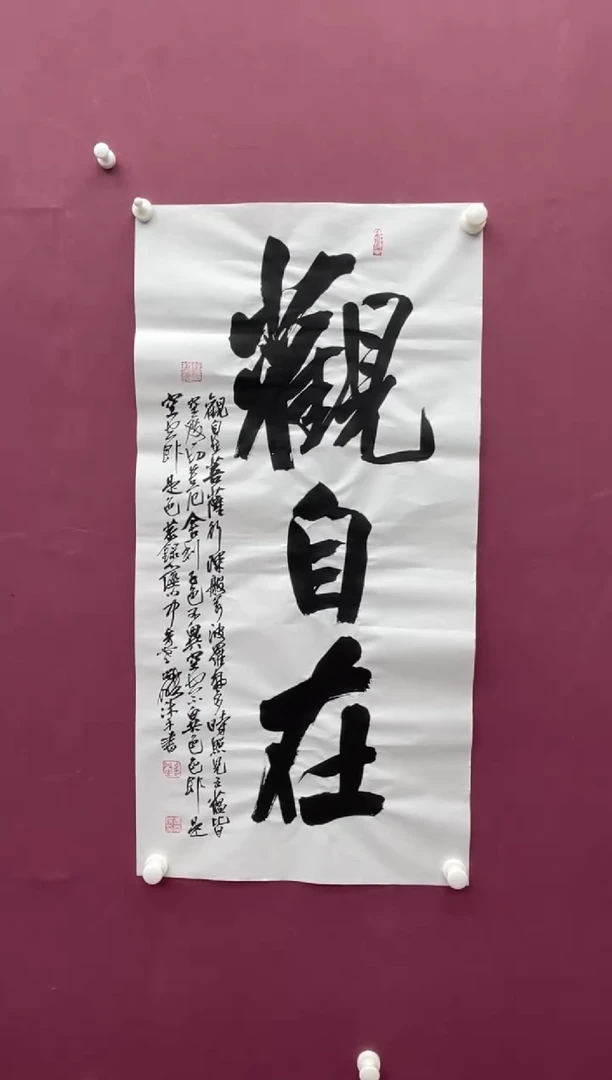 觀自在
觀自在菩薩行深般若波羅蜜多時照見五蘊皆
空度一切苦厄舍利子色不異空空不異色色即是
空空即是色
書